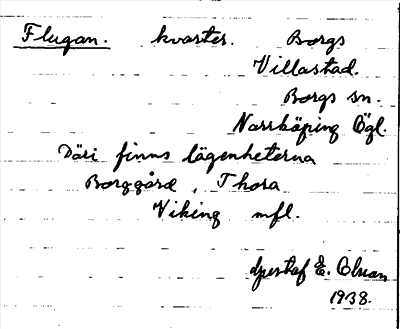 Flugan. kvarter. Borgs
Villastad.
Borgs sn.
Norrköping Ögl.
Däri finns lägenheterna
Borggård, Thora
Viking mfl.
E.
1938.